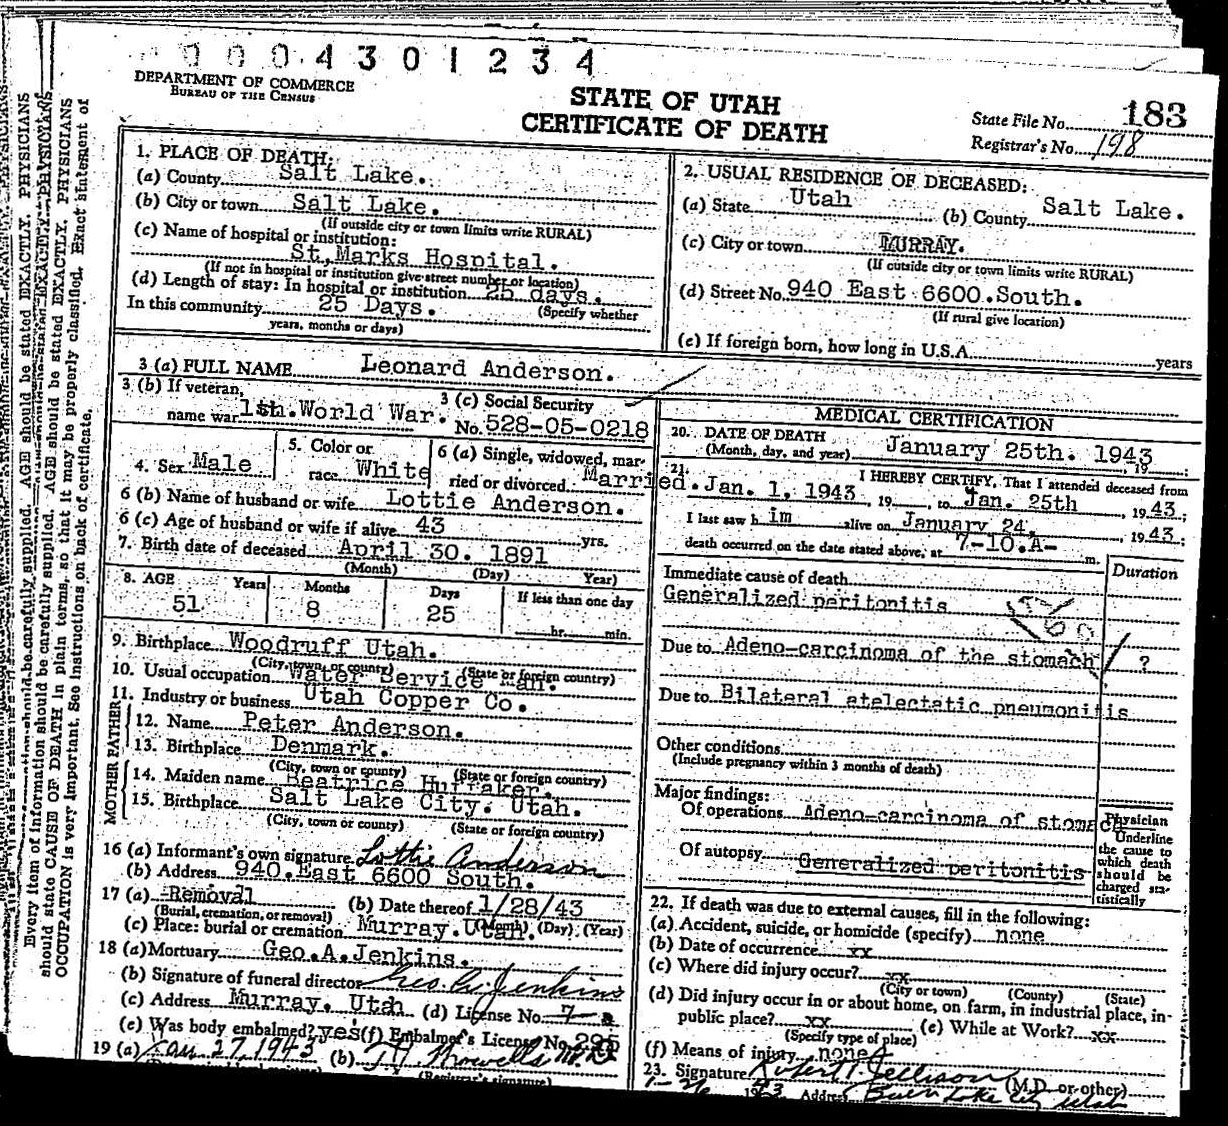 0004301234
DEPARTMENT OF COMMERCE
BUREAU OF THE CENSUS
STATE OF UTAH
CERTIFICATE OF DEATH
State File No. 183
Registrar's No. 198
1. PLACE OF DEATH:
(a) County Salt Lake.
(b) City or town Salt Lake.
(If outside city or town limits write RURAL)
(c) Name of hospital or institution:
St. Marks Hospital.
(If not in hospital or institution give street number or location)
(d) Length of stay: In hospital or institution 25 days.
(Specify whether
In this community 25 Days.
years, months or days)
2. USUAL RESIDENCE OF DECEASED:
(a) State Utah (b) County Salt Lake.
(c) City or town MURRAY.
(If outside city or town limits write RURAL)
(d) Street No. 940 East 6600.South.
(If rural give location)
(e) If foreign born, how long in U.S.A. years
3 (a) FULL NAME Leonard Anderson.
3 (b) If veteran,
name war 1st.World War.
3 (c) Social Security
No. 528-05-0218
4. Sex Male
5. Color or
race White
6 (a) Single, widowed, mar-
ried or divorced Married.
6 (b) Name of husband or wife Lottie Anderson.
6 (c) Age of husband or wife if alive 43 yrs.
7. Birth date of deceased April 30. 1891
(Month) (Day) Year)
8. AGE Years Months Days If less than one day
51 8 25 hr. min.
9. Birthplace Woodruff Utah.
(City, town, or county) (State or foreign country)
10. Usual occupation Water Service man.
11. Industry or business Utah Copper Co.
FATHER
12. Name Peter Anderson.
13. Birthplace Denmark.
(City, town or county) (State or foreign country)
MOTHER
14. Maiden name Beatrice Huffaker.
15. Birthplace Salt Lake City. Utah.
(City, town or county) (State or foreign country)
16 (a) Informant's own signature Lottie Anderson
(b) Address 940.East 6600 South.
17 (a) Removal (b) Date thereof 1/28/43
(Burial, cremation, or removal) (Month) (Day) (Year)
(c) Place: burial or cremation Murray.Utah.
18 (a) Mortuary Geo.A.Jenkins.
(b) Signature of funeral director Geo. A. Jenkins
(c) Address Murray. Utah (d) License No. 7
(e) Was body embalmed? yes (f) Embalmer's License No. 295
19 (a) Jan 27, 1943 (b)
(Registrar's signature)
MEDICAL CERTIFICATION
20. DATE OF DEATH
(Month, day, and year) January 25th. 1943 19
21. I HEREBY CERTIFY, That I attended deceased from
Jan. 1, 1943, 19 , to Jan. 25th , 19 43.;
I last saw h im alive on January 24, , 19 43.;
death occurred on the date stated above, at 7-10.A- m.
Duration
Immediate cause of death
Generalized peritonitis
Due to Adeno-carcinoma of the stomach ?
Due to Bilateral atelectatic pneumonitis
Other conditions
(Include pregnancy within 3 months of death)
Major findings:
Of operations Adeno-carcinoma of stomach
Of autopsy Generalized peritonitis
Physician
Underline
the cause to
which death
should be
charged sta-
tistically
22. If death was due to external causes, fill in the following:
(a) Accident, suicide, or homicide (specify) none
(b) Date of occurrence xx
(c) Where did injury occur? xx
(City or town) (County) (State)
(d) Did injury occur in or about home, on farm, in industrial place, in-
public place? xx (e) While at Work? xx
(Specify type of place)
(f) Means of injury none
23. Signature Robert (M.D. or other)
1-26 Address Lake City Utah
Every item of information should be carefully supplied. AGE should be stated EXACTLY. PHYSICIANS
should state CAUSE OF DEATH in plain terms, so that it may be properly classified. Exact statement of
OCCUPATION is very important. See instructions on back of certificate.